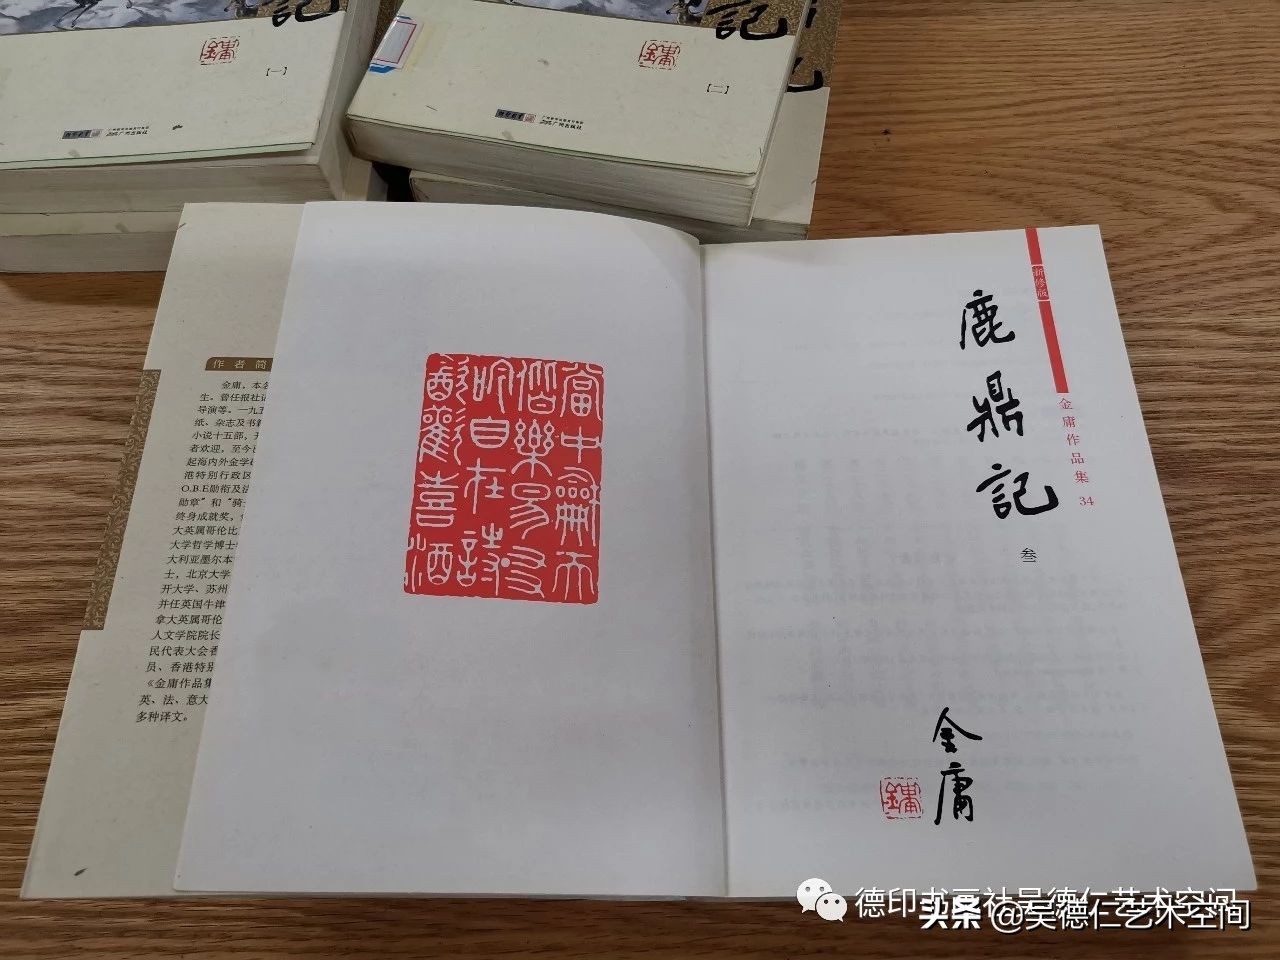 記
金庸
【一】
广州出版社
記
金庸
【二】
广州出版社
作者简
金庸，本名
生。曾任报社记
导演等。一九五
纸、杂志及书籍
小说十五部，
者欢迎，至今已
起海内外金学研
港特别行政区
O.B.E勋衔及法
勋章”和“骑士
终身成就奖，
大英属哥伦比
大学哲学博士
大利亚墨尔本
士，北京大学
开大学、苏州
并任英国牛津
拿大英属哥伦
人文学院院长
民代表大会香
员、香港特别
《金庸作品集
英、法、意大
多种译文。
當中龢天
偕樂易友
吟自在詩
飲歡喜酒
新修版
金庸作品集 34
鹿鼎記
叁
金庸
金庸
德印书画社吴德仁艺术空间
头条 @吴德仁艺术空间